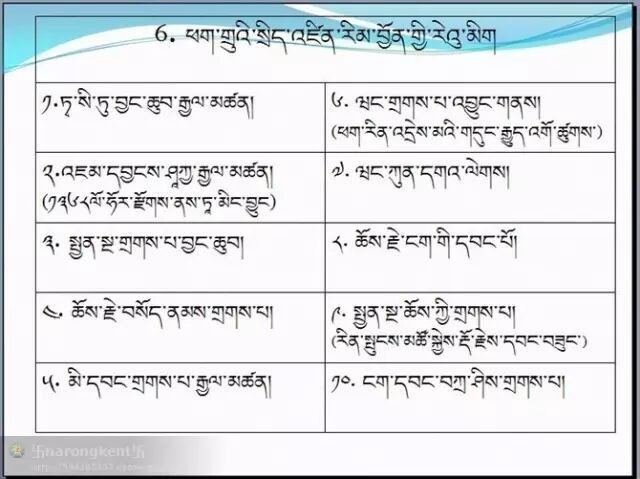 6. ཕག་གྲུའི་སྲིད་འཛིན་རིམ་བྱོན་གྱི་རེའུ་མིག
༡.ཏཱ་སི་ཏུ་བྱང་ཆུབ་རྒྱལ་མཚན།
༢.འཇམ་དབྱངས་ཤཱཀྱ་རྒྱལ་མཚན།
(༡༣༦༨ལོ་ཧོར་རྫོགས་ནས་ཏཱ་མིང་བྱུང)
༣. སྤྱན་སྔ་གྲགས་པ་བྱང་ཆུབ།
༤. ཆོས་རྗེ་བསོད་ནམས་གྲགས་པ།
༥. མི་དབང་གྲགས་པ་རྒྱལ་མཚན།
༦. ཝང་གྲགས་པ་འབྱུང་གནས།
(ཕག་རིན་འདྲེས་མའི་གདུང་རྒྱུད་འགོ་ཚུགས་)
༧. ཝང་ཀུན་དགའ་ལེགས།
༨. ཆོས་རྗེ་ངག་གི་དབང་པོ།
༩. སྤྱན་སྔ་ཆོས་ཀྱི་གྲགས་པ།
(རིན་སྤུངས་མཚོ་སྐྱེས་རྡོ་རྗེས་དབང་བཟུང་)
༡༠. ངག་དབང་བཀྲ་ཤིས་གྲགས་པ།
卐narongkent卐